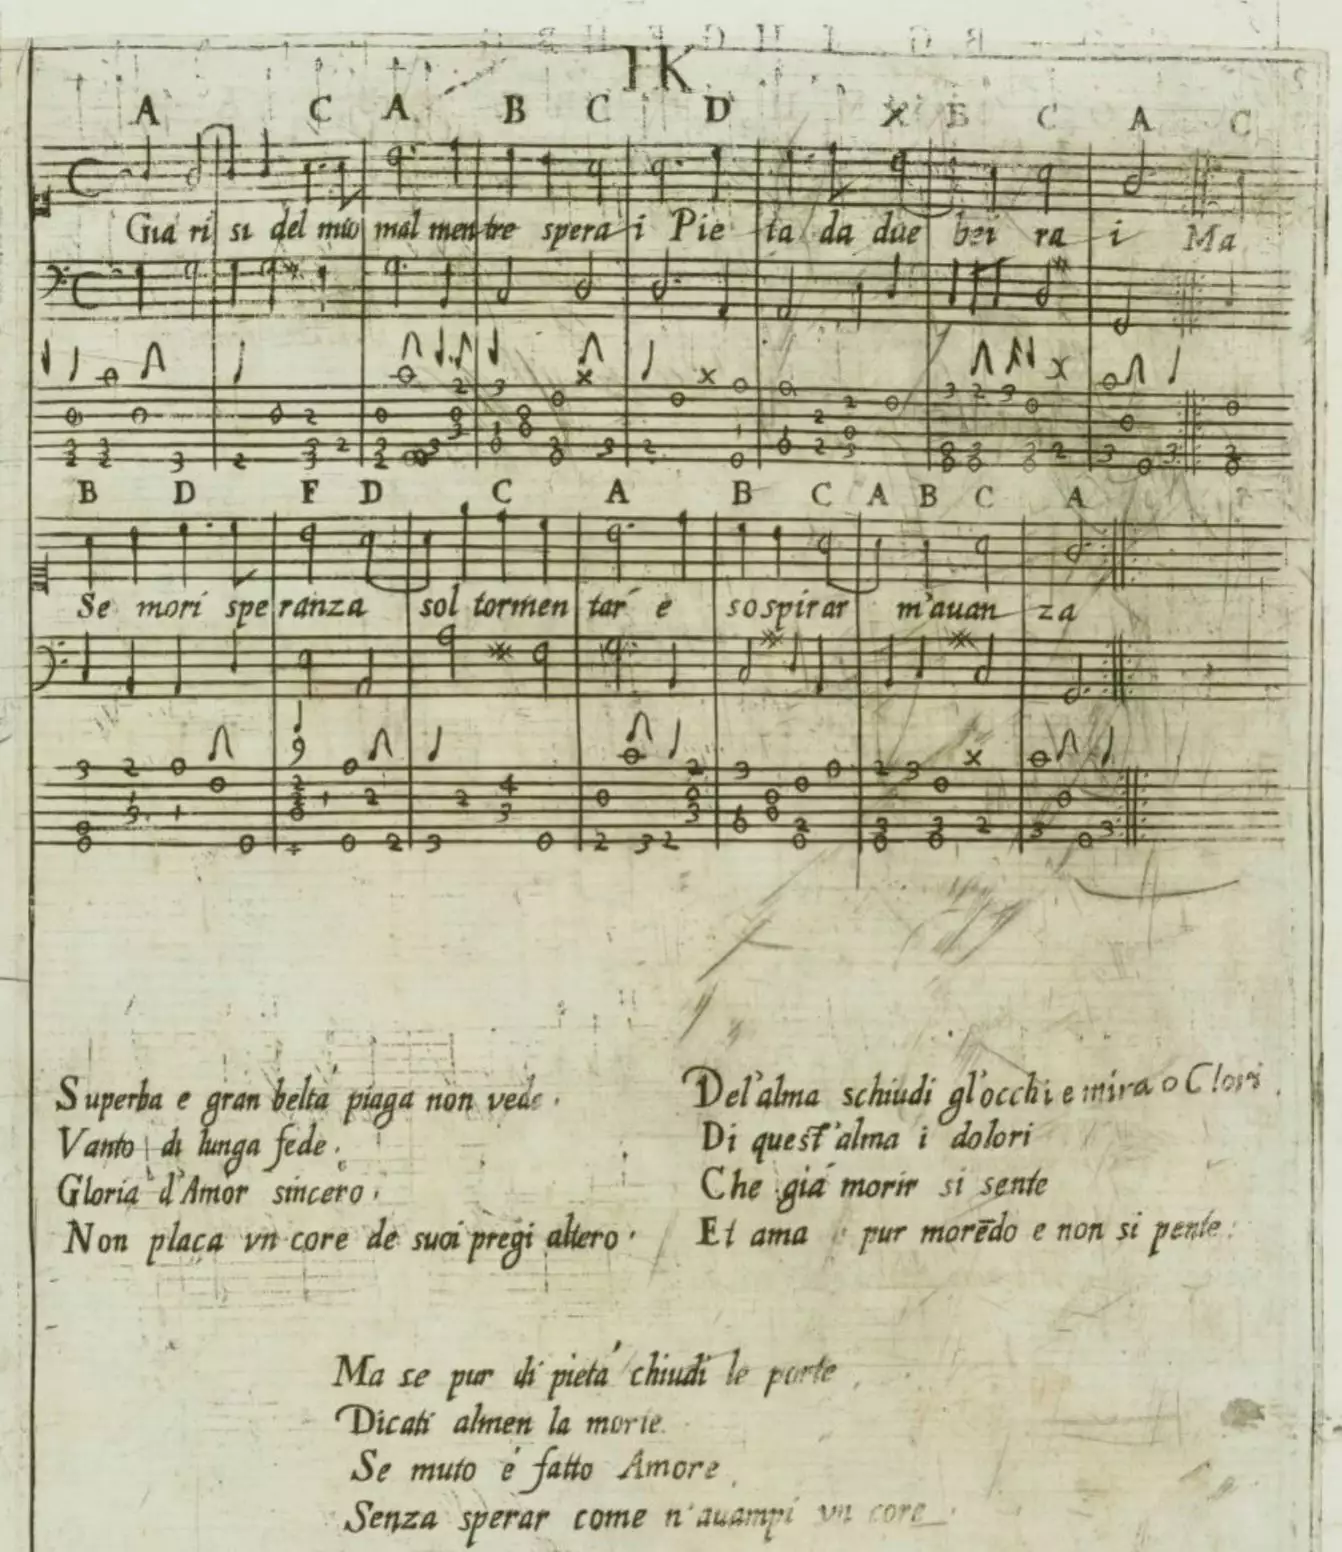 IK
A C A B C D X B C A C
Gia ri si del mio mal mentre spera i Pie ta da due bei ra i Ma
B D F D C A B C A B C A
Se mori speranza sol tormentar e sospirar m'auan za
Superba e gran beltá piaga non vede.
Vanto di lunga fede.
Gloria d'Amor sincero.
Non placa vn core de suoi pregi altero.
Del'alma schiudi gl'occhi e mira o Clori.
Di quest'alma i dolori
Che giá morir si sente
Et ama pur morēdo e non si pente.
Ma se pur di pietá chiudi le porte
Dicati almen la morte.
Se muto é fatto Amore
Senza sperar come n'auampi vn core